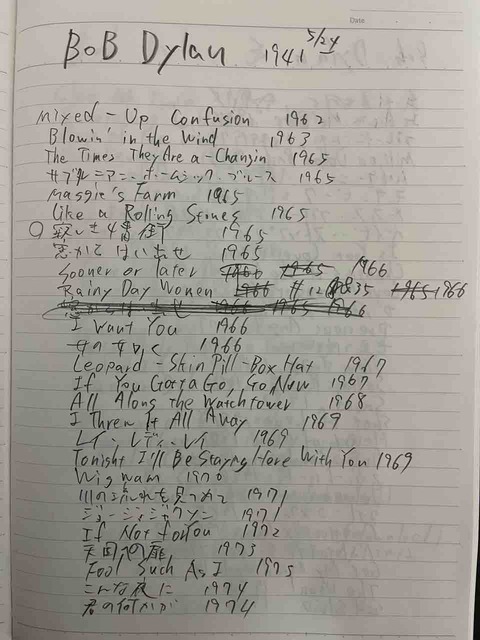 Date
BoB Dylan 1941 5/24
mixed-Up Confusion 1962
Blowin' in the Wind 1963
The Times They Are a-Changin 1965
サブタレニアン・ホームシック・ブルース 1965
Maggie's Farm 1965
Like a Rolling Stones 1965
寂しき4番街 1965
窓からはい出せ 1965
Sooner or later 1966 1965 1966
Rainy Day Women 1966 #12 & 35 1965 1966
1966 1965 1966
I Want You 1966
女の如く 1966
Leopard-Skin Pill-Box Hat 1967
If You Gotta Go, Go Now 1967
All Along the Watchtower 1968
I Threw It All Away 1969
レイ・レディ・レイ 1969
Tonight I'll Be Staying Here With You 1969
Wigwam 1970
川の流れを見つめて 1971
ジョージ・ジャクソン 1971
If Not for You 1972
天国への扉 1973
Fool Such As I 1975
こんな夜に 1974
君の何かが 1974